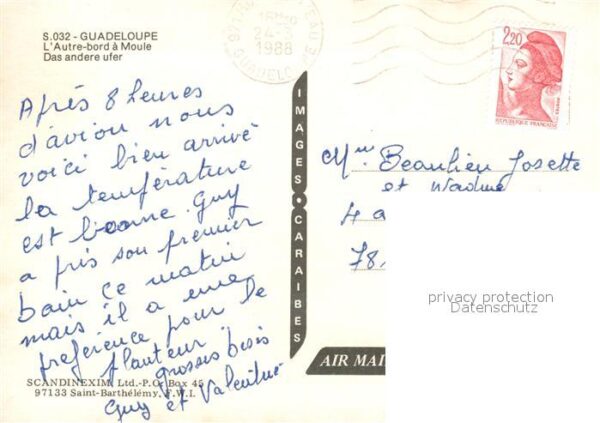 S.032 - GUADELOUPE
L'Autre-bord à Moule
Das andere ufer
Après 8 heures
d'avion nous
voici bien arrivé
la température
est bonne. Guy
a pris son premier
bain ce matin
mais il a une
preference pour le
planteur
grosses bises
Guy et Valentine
SCANDINEXIM, Ltd.-P.O. Box 45
97133 Saint-Barthélémy, F.W.I.
IMAGES CARAIBES
AIR MAI
24-3
1988
2,20
REPUBLIQUE FRANÇAISE
Beaulieu Josette
et Nadine
4 a
78
privacy protection
Datenschutz